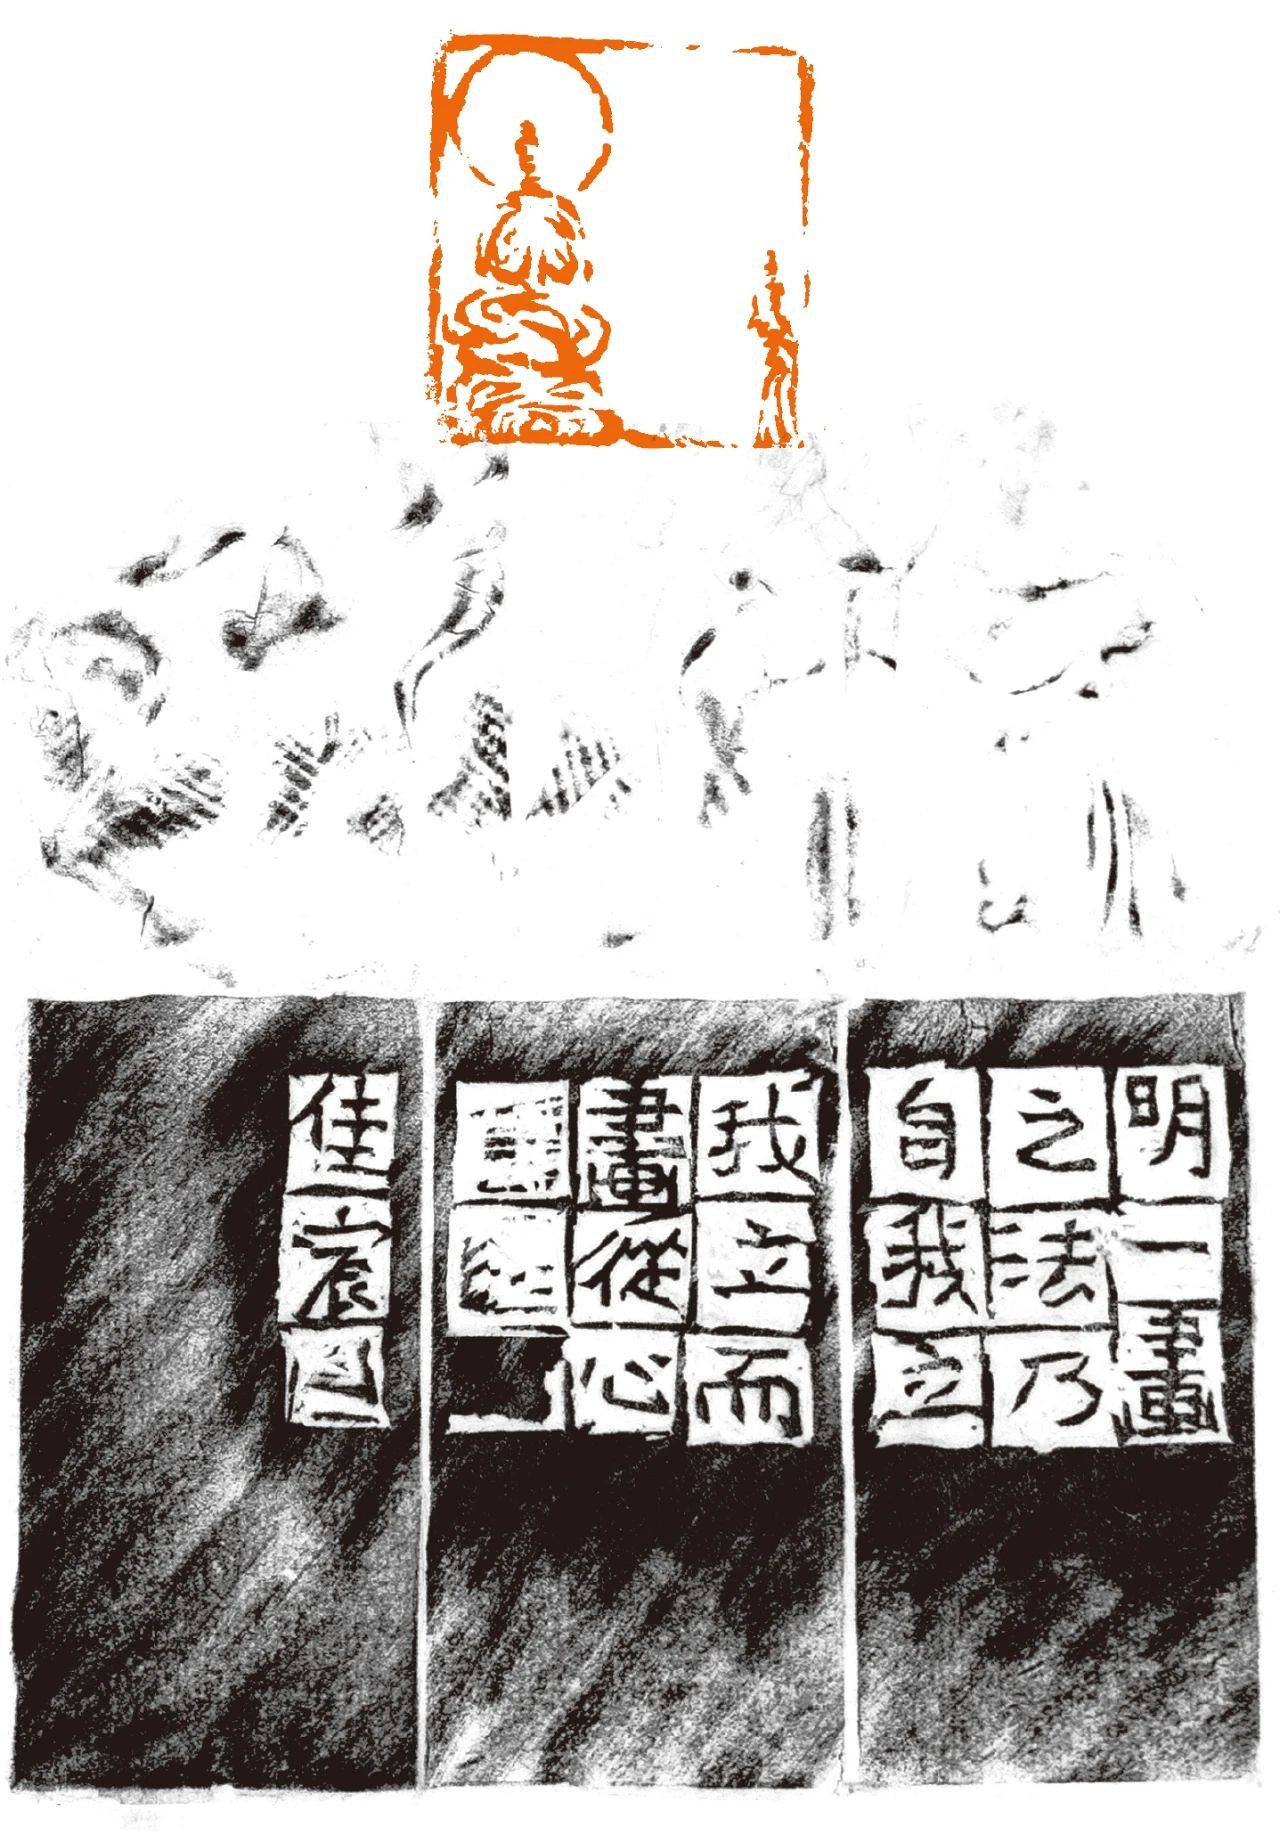 明一畫
之法乃
自我立
我立而
畫從心
佳宸